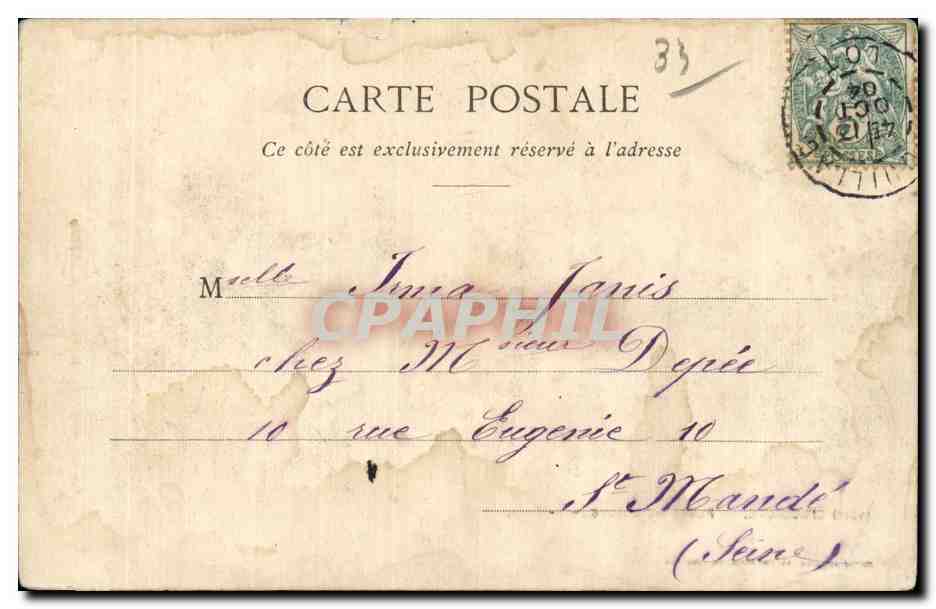 33
CARTE POSTALE
Ce côté est exclusivement réservé à l'adresse
LOT
4E / 12
OCT
04
Mselle Irma Janis
CPAPHIL
chez Msieur Depée
10 rue Eugenie 10
St Mandé
(Seine)